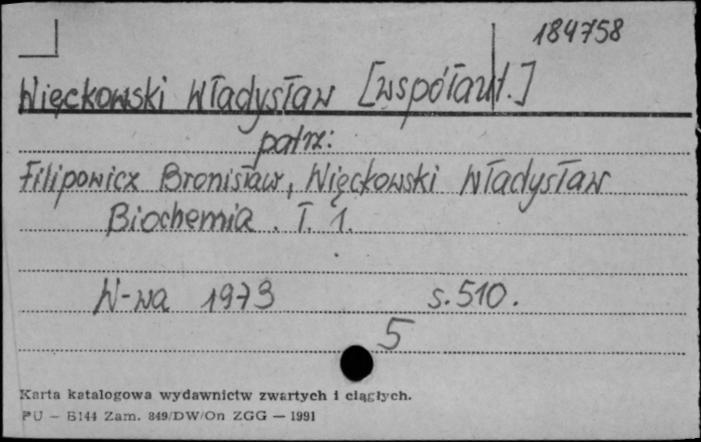 184758
Więckowski Władysław [współaut.]
patrz:
Filipowicz Bronisław, Więckowski Władysław
Biochemia. T. 1.
W-wa 1973 s. 510.
5
Karta katalogowa wydawnictw zwartych i ciągłych.
PU — B144 Zam. 849/DW/On ZGG — 1991